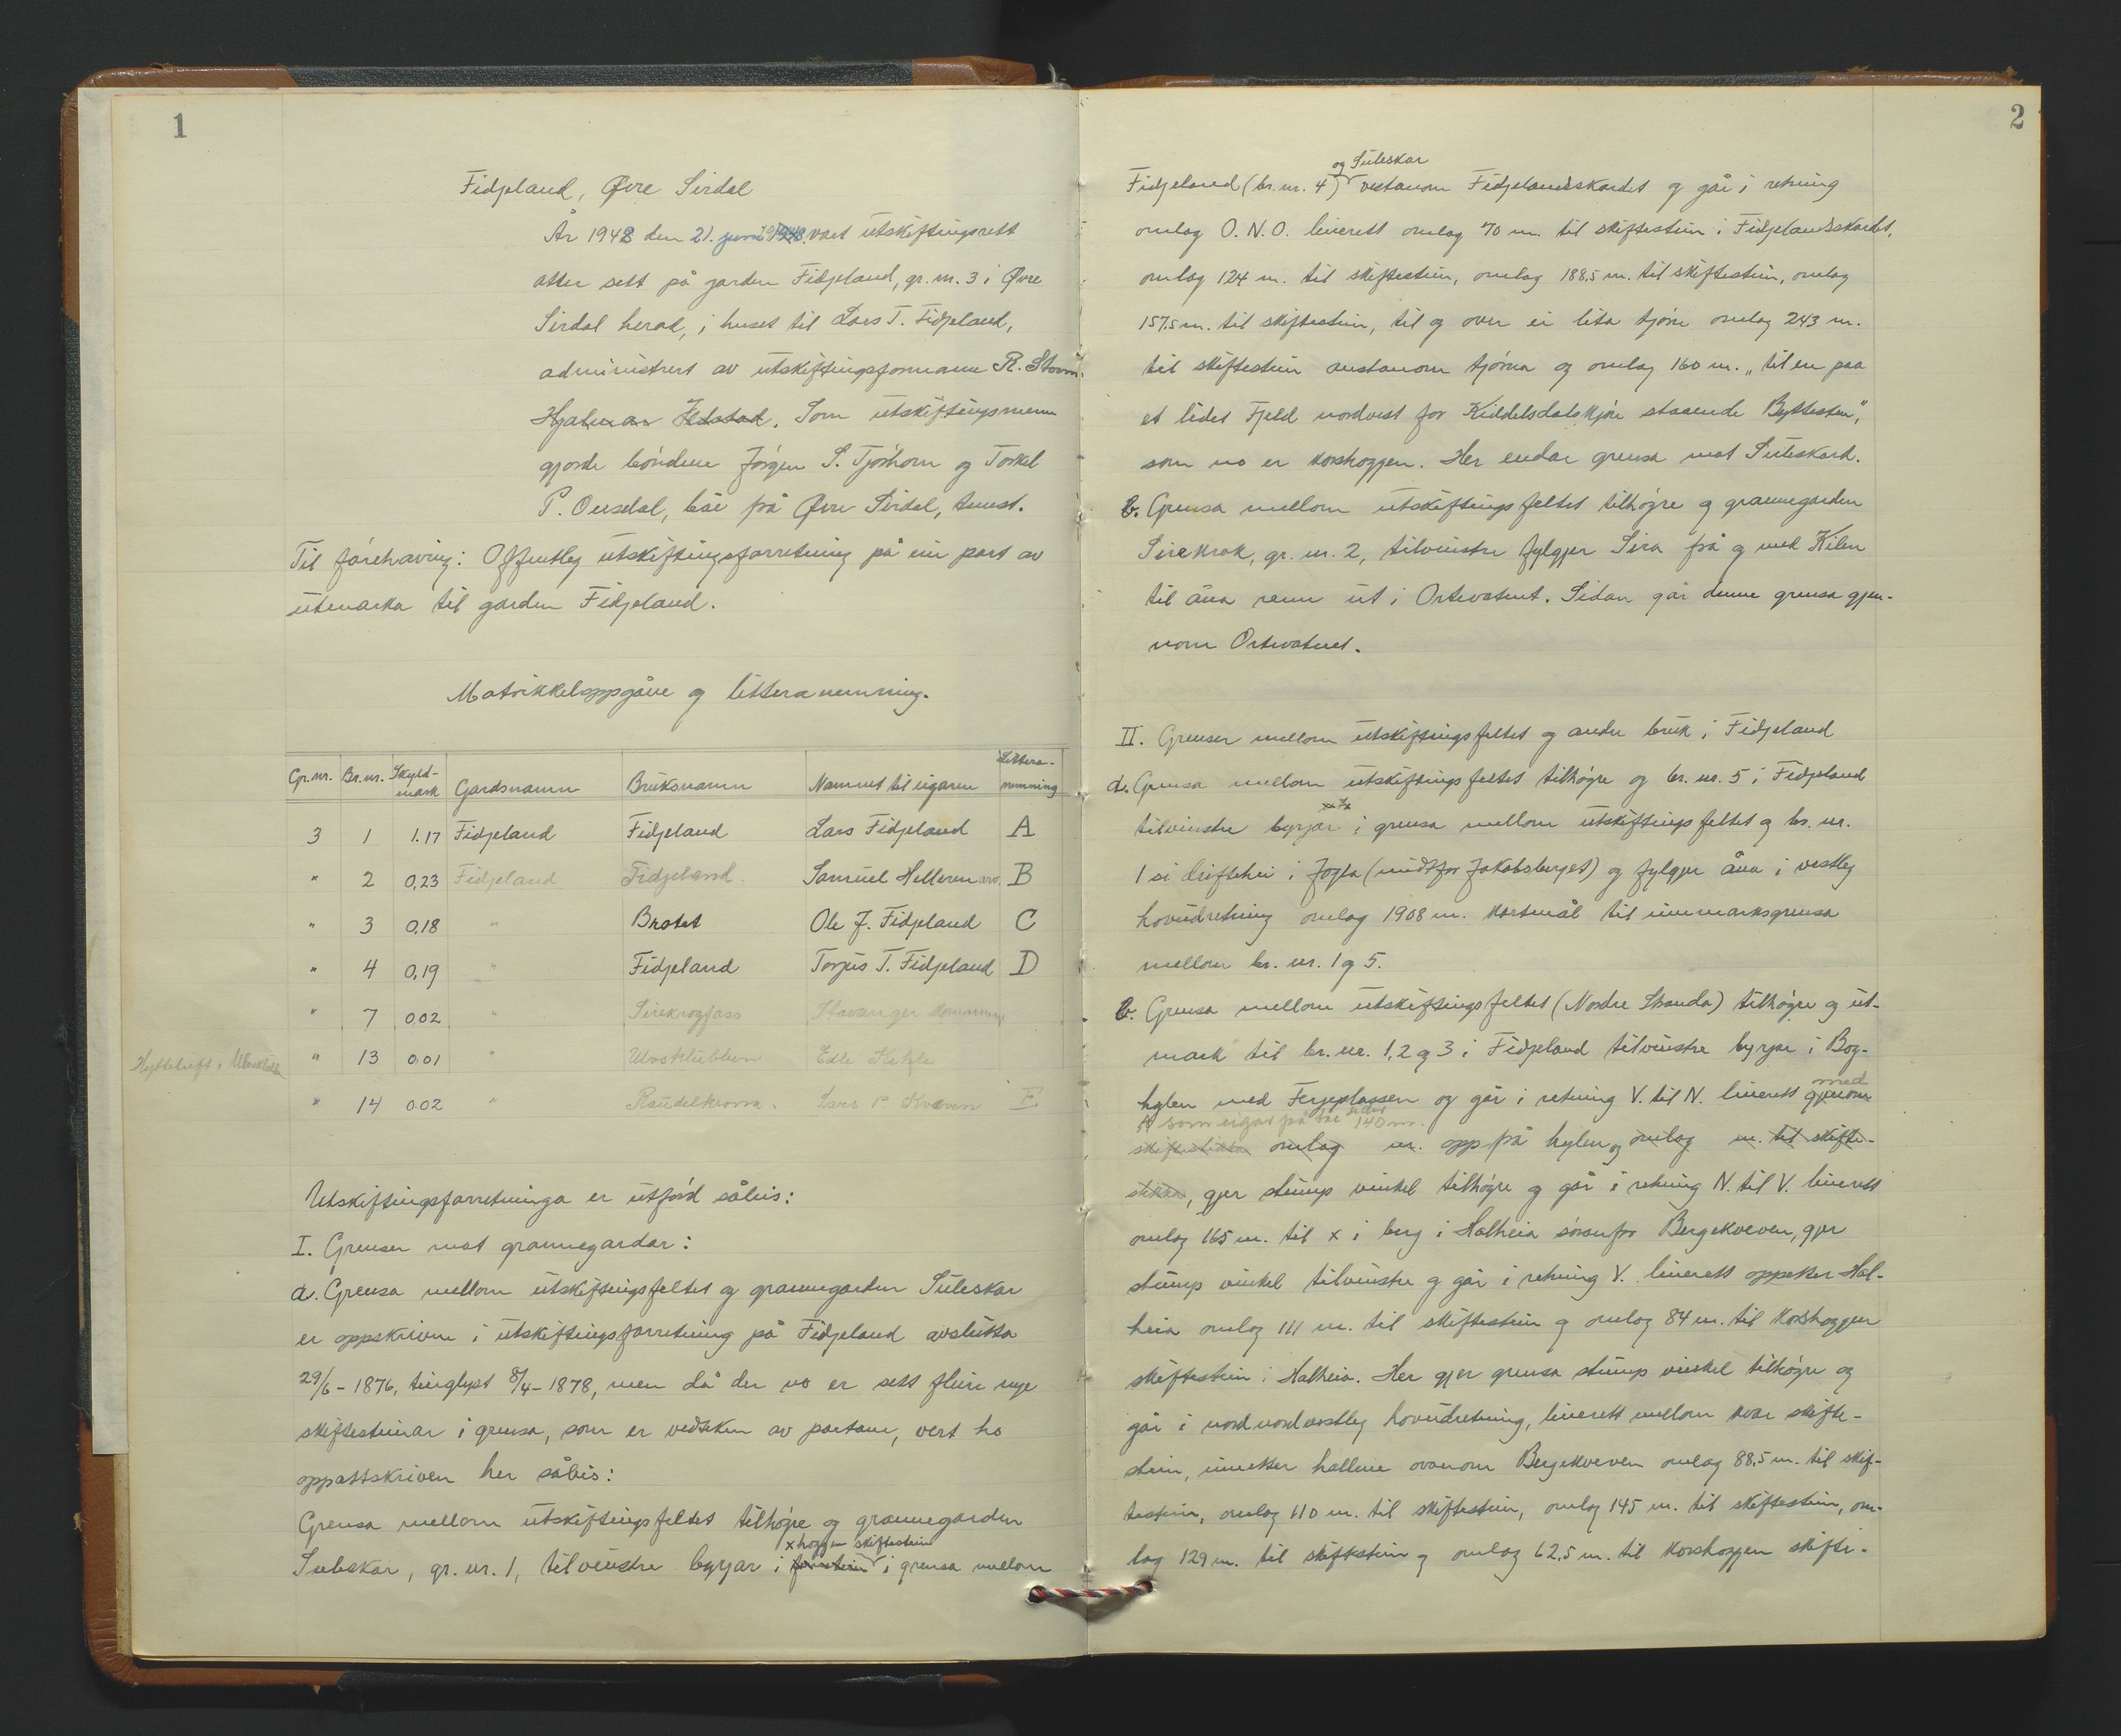 1
Fidjeland, Øvre Sirdal
År 1948 den 21. juni vart utskiftingsrett
atter sett på garden Fidjeland, gr. nr. 3 i Øvre
Sirdal herad, i huset til Lars T. Fidjeland,
administrert av utskiftingsformann R. Storm.
Hjalmar Som utskiftingsmenn
gjorde bóndene Jórgen S. Tjórhom og Torkel
P. Ousdal, båe frå Øvre Sirdal, tenest.
Til fórehaving: Offentleg utskiftingsforretning på ein part av
utmarka til garden Fidjeland.
Matrikkeloppgåve og litteranemning.
Gr. nr. Br. nr. Skyld-mark Gardsnamn Bruksnamn Namnet til eigaren Littera-nemning
3 1 1.17 Fidjeland Fidjeland Lars Fidjeland A
" 2 0,23 Fidjeland Fidjeland. Samuel Helleren arv. B
" 3 0,18 " Brotet Ole J. Fidjeland C
" 4 0,19 " Fidjeland Torjus T. Fidjeland D
" 7 0.02 " Sirekrogfoss Stavanger kommune
" 13 0.01 " Ulvsklubben Edle
" 14 0.02 " Lars P. Kvæven E
Utskiftingsforretninga er utførd såleis:
I. Grenser mot grannegardar:
a. Grensa mellom utskiftingsfeltet og grannegarden Suleskar
er oppskriven i utskiftingsforretning på Fidjeland avslutta
29/6-1876, tinglyst 8/4-1878, men då der no er sett fleire nye
skiftesteinar i grensa, som er vedteken av partane, vert ho
oppattskriven her såleis:
Grensa mellom utskiftingsfeltet tilhógre og grannegarden
x hoggen skiftestein
Suleskar, gr. nr. 1, tilvinstre byrjar i i grensa mellom
2
og Suleskar
Fidjeland (br. nr. 4) vestanom Fidjelandsskardet og går i retning
omlag O.N.O. linerett omlag 70 m. til skiftestein i Fidjelandsskardet,
omlag 124 m. til skiftestein, omlag 188,5 m. til skiftestein, omlag
157,5 m. til skiftestein, til og over ei lita tjórn omlag 243 m.
til skiftestein austanom tjórna og omlag 160 m. „til en paa
et lidet Fjeld nordvest for Kiddelsdalskjón staaende Byttesten",
som no er krosshoggen. Her endar grensa mot Suleskard.
b. Grensa mellom utskiftingsfeltet tilhógre og grannegarden
Sirekrok, gr. nr. 2, tilvinstre fylgjer Sira frå og med Kilen
til åna renn ut i Ortevatnet. Sidan går denne grensa gjen-
nom Ortevatnet.
II. Grenser mellom utskiftingsfeltet og andre bruk i Fidjeland
a. Grensa mellom utskiftingsfeltet tilhógre og br. nr. 5 i Fidjeland
tilvinstre byrjar i grensa mellom utskiftingsfeltet og br. nr.
1 si driftehei i Jogla (midtfor Jakobsberget) og fylgjer åna i vestleg
hovudretning omlag 1908 m. kartmål til innmarksgrensa
mellom br. nr. 1 og 5.
b. Grensa mellom utskiftingsfeltet (Nordre Skanda) tilhógre og ut-
mark til br. nr. 1, 2 og 3 i Fidjeland tilvinstre byrjar i Bog-
med
hylen med Ferjeplassen og går i retning V. til N. linerett gjenom
som eigar på båe sider 140 m.
omlag m. opp på hylen og omlag m. til skifte-
, gjer stump vinkel tilhógre og går i retning N. til V. linerett
omlag 165 m. til x i berg i Halheia sóranfor Bergekveven, gjer
stump vinkel tilvinstre og går i retning V. linerett oppetter Hal-
heia omlag 111 m. til skiftestein og omlag 84 m. til krosshoggen
skiftestein i Halheia. Her gjer grensa stump vinkel tilhógre og
går i nordnordvestleg hovudretning, linerett mellom kvar skifte-
stein, innetter hallene ovanom Bergekveven omlag 88,5 m. til skif-
testein, omlag 110 m. til skiftestein, omlag 145 m. til skiftestein, om-
lag 129 m. til skiftestein og omlag 62,5 m. til krosshoggen skifte-